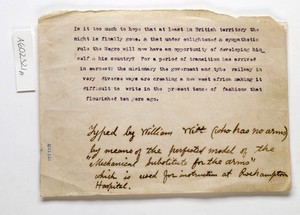 Is it too much to hope that at least in British territory the
night is finally gone, & that under enlightened & sympathetic
rule the Negro will now have an opportunity of developing him
self & his country? For a period of transition has arrived
in earnest: the missionary the government and the railway in
very diverse ways are creating a new west africa making it
difficult to write in the present tense of fashions that
flourished ten years ago.
Typed by William Witt (who has no arms)
by means of the perfected model of the
"Mechanical Substitute for the arms"
which is used for instruction at Roehampton
Hospital.